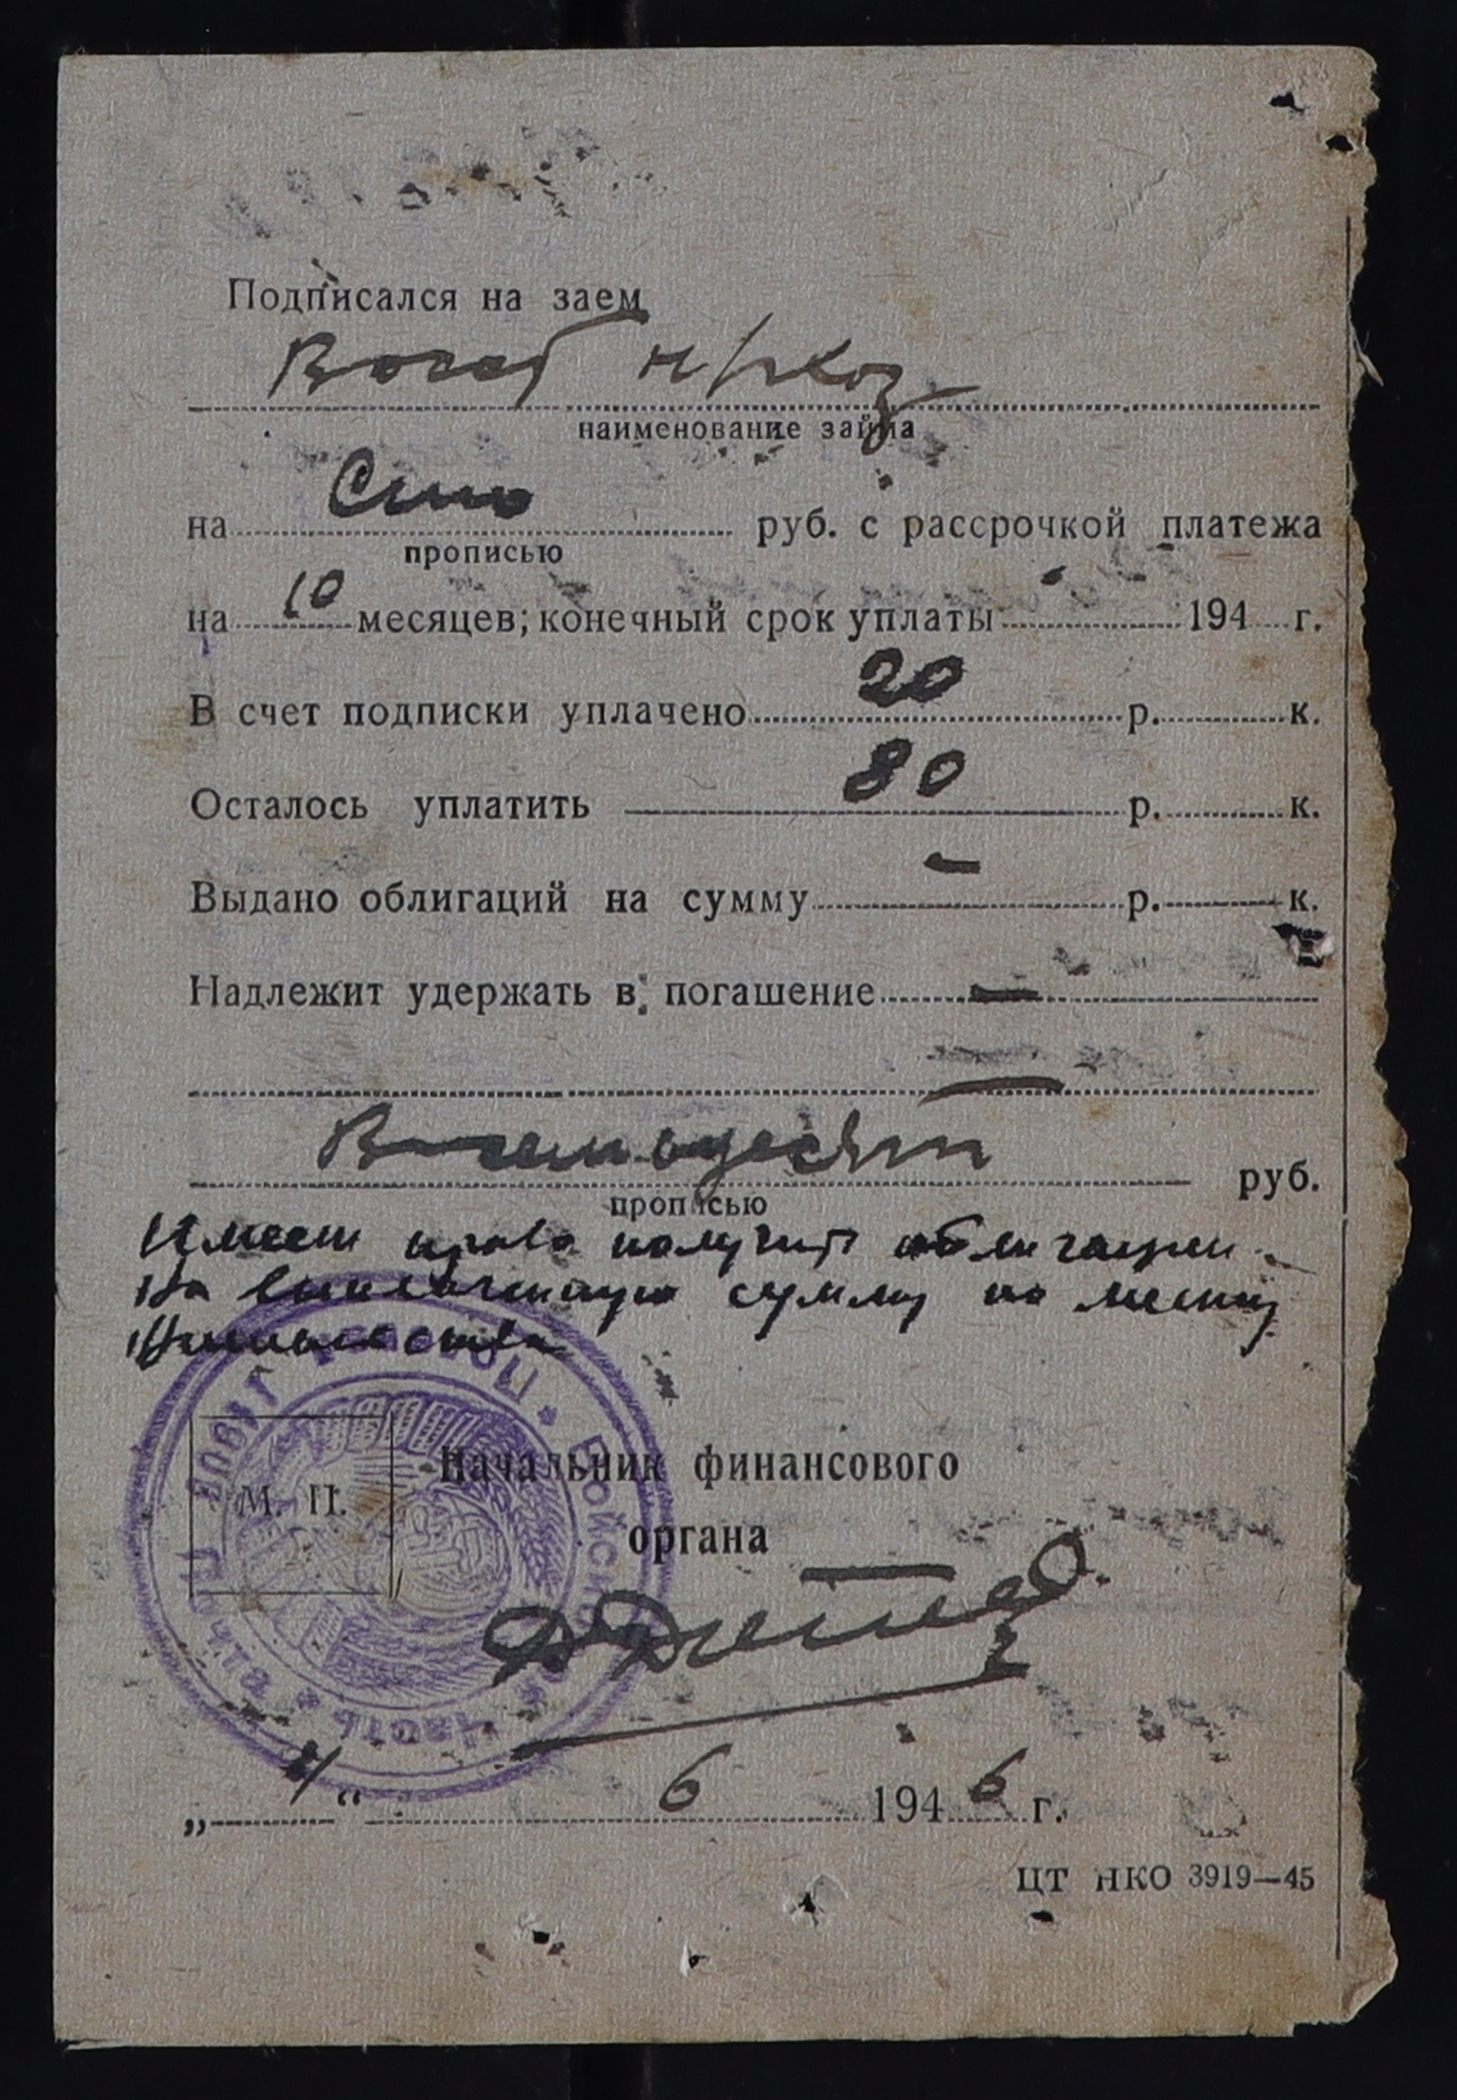 Подписался на заем
Восст нрхоз
наименование займа
на Сто руб. с рассрочкой платежа
прописью
на 10 месяцев; конечный срок уплаты 194 г.
В счет подписки уплачено 20 р. к.
Осталось уплатить 80 р. к.
Выдано облигаций на сумму — р. к.
Надлежит удержать в погашение —
—
Восемьдесят руб.
прописью
Имеет право получить облигации
на выплаченную сумму по месту
жительства
М. П.
Начальник финансового
органа
„4“ 6 1946 г.
ЦТ НКО 3919—45
Войсковая часть Полевая почта